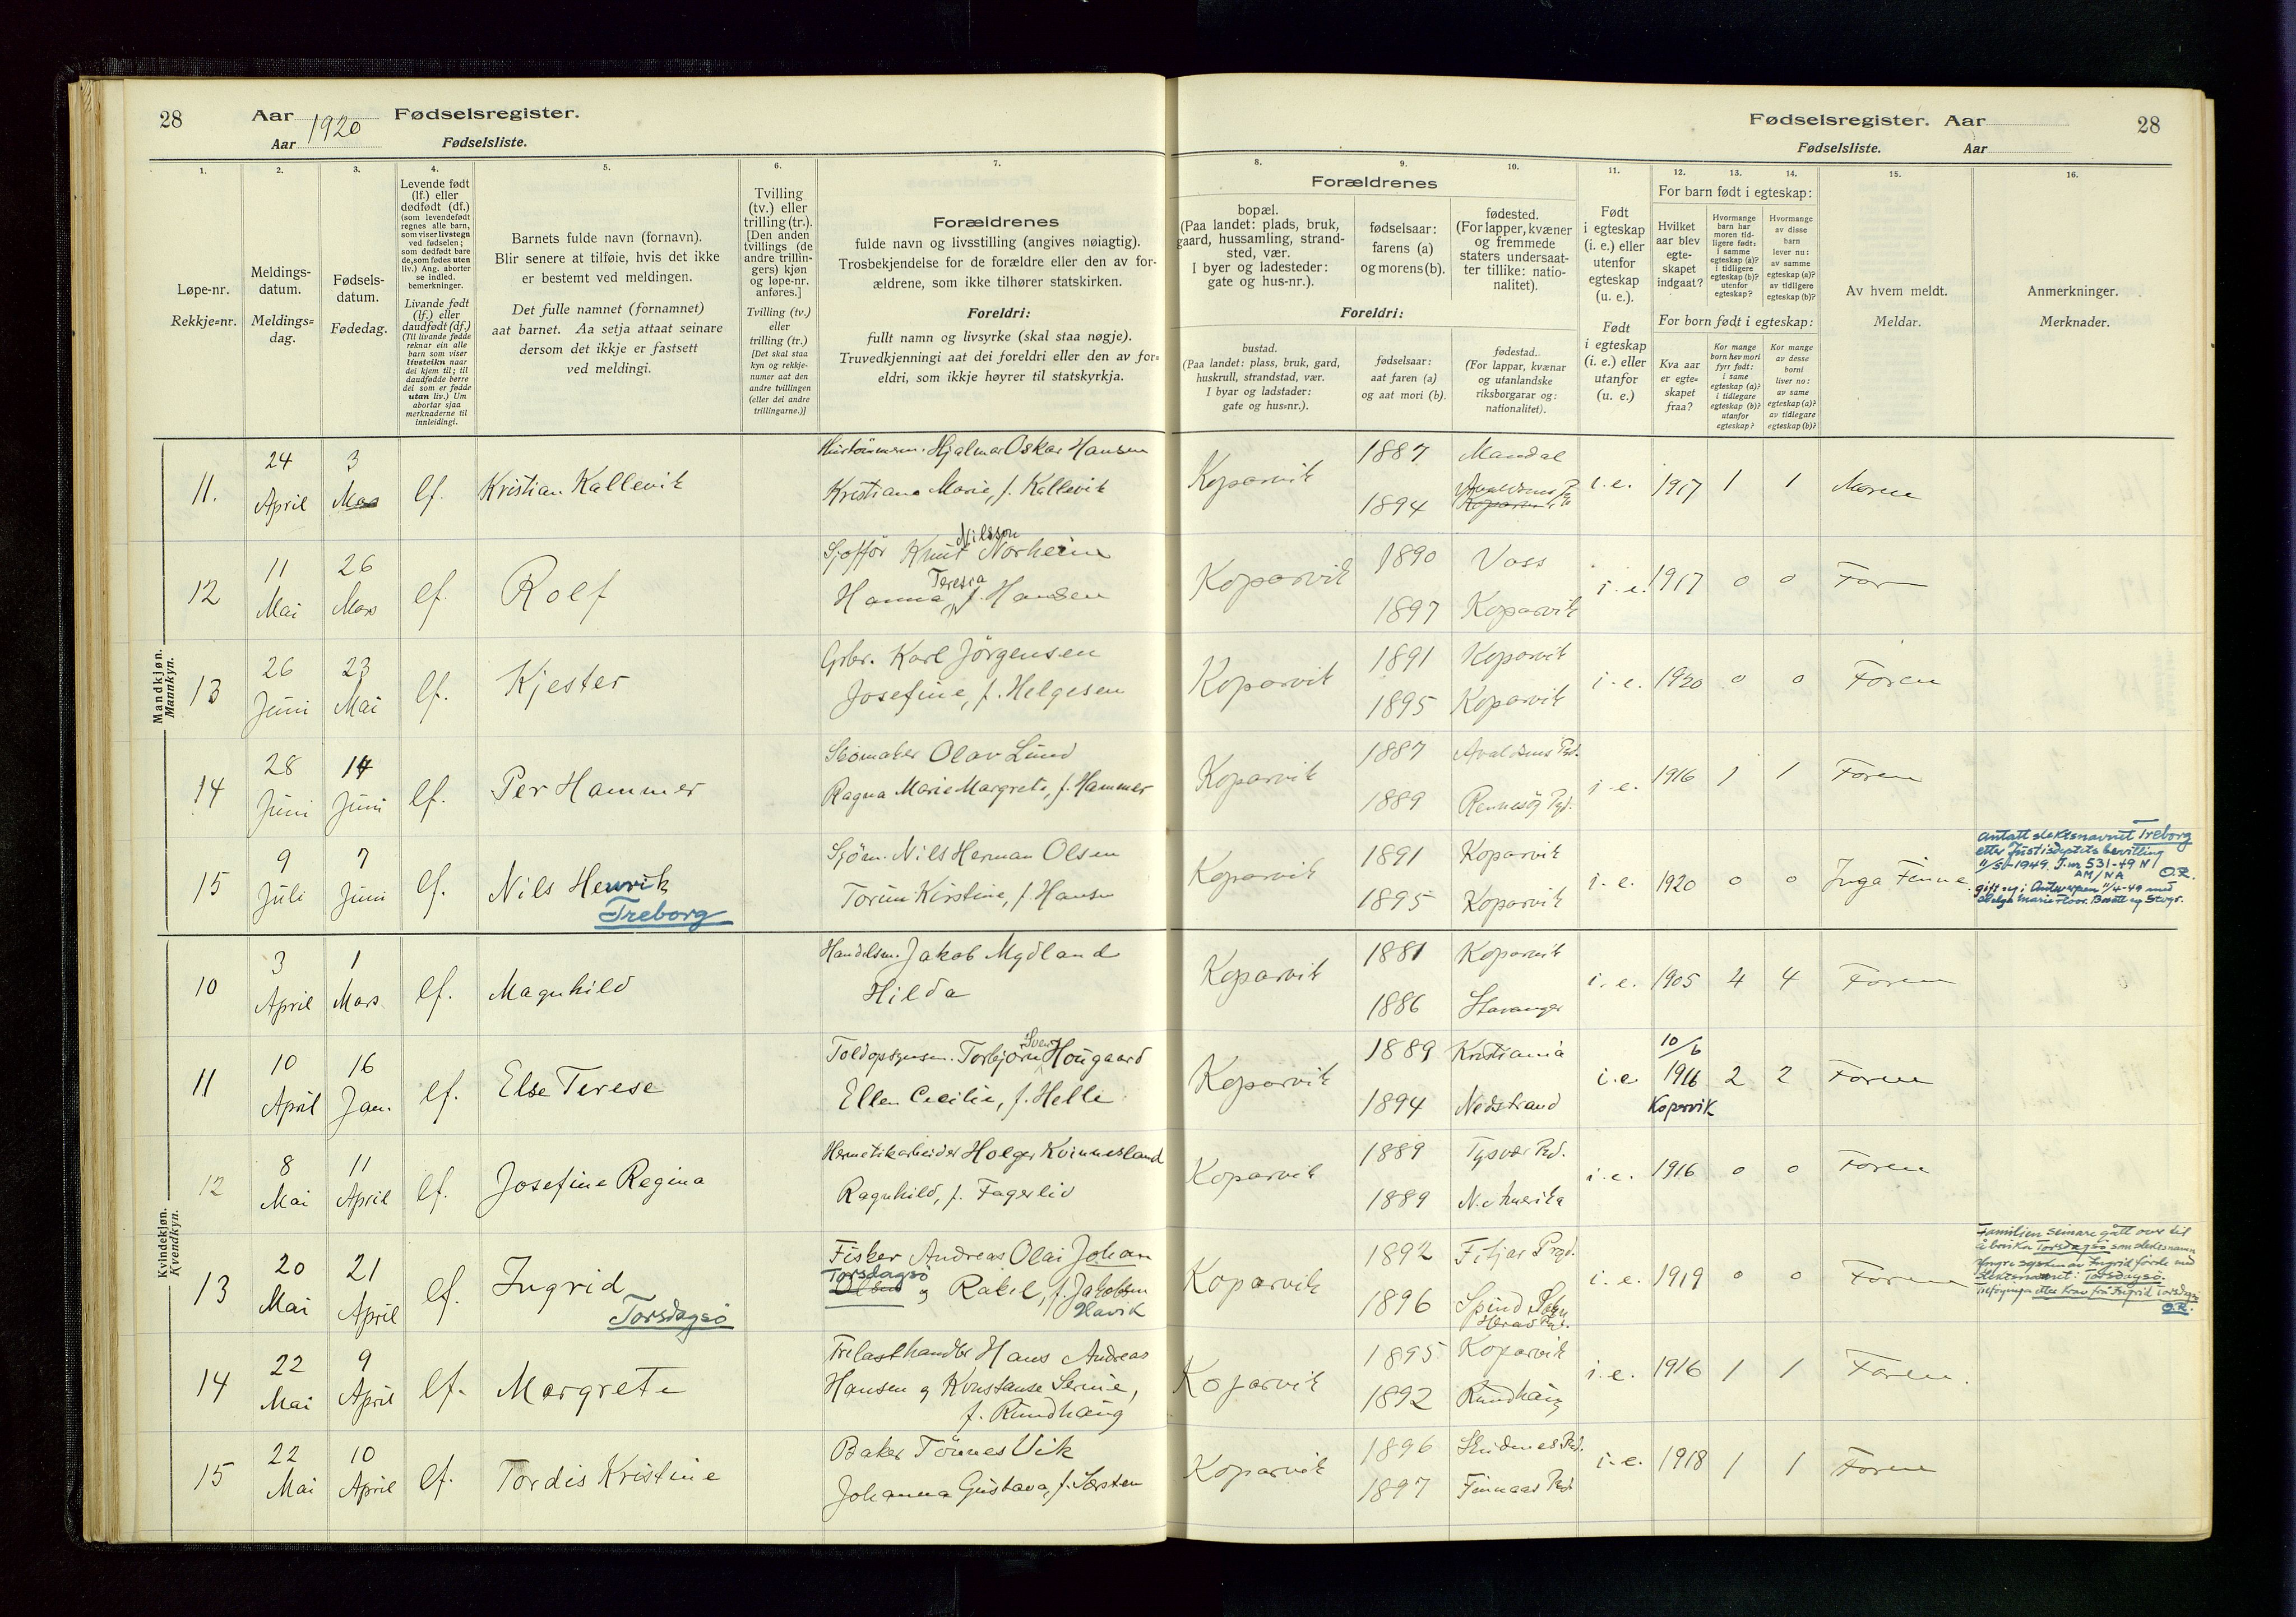 28 Aar 1920 Fødselsregister.
Aar Fødselsliste.
Fødselsregister. Aar 28
Fødselsliste. Aar
1. 2. 3. 4. 5. 6. 7. 8. 9. 10. 11. 12. 13. 14. 15. 16.
Løpe-nr.
Rekkje=nr.
Meldings-
datum.
Meldings=
dag.
Fødsels-
datum.
Fødedag.
Levende født
(lf.) eller
dødfødt (df.)
(som levendefødt
regnes alle barn,
som viser livstegn
ved fødselen;
som dødfødt bare
de, som fødes uten
liv.) Ang. aborter
se indled.
bemerkninger.
Livande født
(lf.) eller
daudfødt (df.)
(Til livande fødde
reknar ein alle
barn som viser
livsteikn naar
dei kjem til; til
daudfødde berre
dei som er fødde
utan liv.) Um
abortar sjaa
merknaderne til
innleidingi.
Barnets fulde navn (fornavn).
Blir senere at tilføie, hvis det ikke
er bestemt ved meldingen.
Det fulle namnet (fornamnet)
aat barnet. Aa setja attaat seinare
dersom det ikkje er fastsett
ved meldingi.
Tvilling
(tv.) eller
trilling (tr.).
[Den anden
tvillings (de
andre trillin-
gers) kjøn
og løpe-nr.
anføres.]
Tvilling (tv.)
eller
trilling (tr.)
[Det skal staa
kyn og rekkje-
numer aat den
andre tvillingen
(eller dei andre
trillingarne.)]
Forældrenes
fulde navn og livsstilling (angives nøiagtig).
Trosbekjendelse for de forældre eller den av for-
ældrene, som ikke tilhører statskirken.
Foreldri:
fullt namn og livsyrke (skal staa nøgje).
Truvedkjenningi aat dei foreldri eller den av for=
eldri, som ikkje høyrer til statskyrkja.
Forældrenes
bopæl.
(Paa landet: plads, bruk,
gaard, hussamling, strand-
sted, vær.
I byer og ladesteder:
gate og hus-nr.).
fødselsaar:
farens (a)
og morens (b).
fødested.
(For lapper, kvæner
og fremmede
staters undersaat-
ter tillike: natio-
nalitet).
Foreldri:
bustad.
(Paa landet: plass, bruk, gard,
huskrull, strandstad, vær.
I byar og ladstader:
gate og hus=nr.).
fødselsaar:
aat faren (a)
og aat mori (b).
fødestad.
(For lappar, kvænar
og utanlandske
riksborgarar og:
nationalitet).
Født
i egteskap
(i. e.) eller
utenfor
egteskap
(u. e.).
Født
i egteskap
(i. e.) eller
utanfor
(u. e.)
For barn født i egteskap:
Hvilket
aar blev
egte-
skapet
indgaat?
Hvormange
barn har
moren tid-
ligere født:
i samme
egteskap (a)?
i tidligere
egteskap (b)?
utenfor
egteskap?
Hvormange
av disse
barn
lever nu:
av samme
egteskap (a)?
av tidligere
egteskap (b)?
For born født i egteskap:
Kva aar
er egte=
skapet
fraa?
Kor mange
born hev mori
fyrr født:
i same
egteskap (a)?
i tidlegare
egteskap (b)?
utanfor
egteskap?
Kor mange
av desse
borni
liver no:
av same
egteskap (a)?
av tidlegare
egteskap (b)?
Av hvem meldt.
Meldar.
Anmerkninger.
Merknader.
Mandkjøn.
Mannkyn.
11. 24 April 3 Mars lf. Kristian Kallevik
Hjalmar Oskar Hansen
Kristiane Marie, f. Kallevik
Koparvik 1887 Mandal
1894 Avaldsnes Pg.
i. e. 1917 1 1 Moren
12 11 Mai 26 Mars lf. Rolf
Sjoffør Knut Nilsson Norheim
Hanna Teresia f. Hansen
Koparvik 1890 Voss
1897 Koparvik
i. e. 1917 0 0 Far
13 26 Juni 23 Mai lf. Kjester
Grbr. Karl Jörgensen
Josefine, f. Helgesen
Koparvik 1891 Koparvik
1895 Koparvik
i. e. 1920 0 0 Faren
14 28 Juni 14 Juni lf. Per Hammer
Skomaker Olav Lund
Ragna Marie Margrete, f. Hammer
Koparvik 1887 Avaldsnes Pgd.
1889 Rennesøy Pgd.
i. e. 1916 1 1 Faren
15 9 Juli 7 Juni lf. Nils Henrik
Treborg
Sjöm. Nils Herman Olsen
Torun Kirstine, f. Hansen
Koparvik 1891 Koparvik
1895 Koparvik
i. e. 1920 0 0 Inga Finne
Antatt slektsnavnet Treborg
etter Justisdeptets bevilling
11/5-1949. J.nr 531-49 N
AM/NA O.R.
gift og i Antwerpen 11/4-49 med
Helga Marie Floor.
Kvindekjøn.
Kvendkyn.
10 3 April 1 Mars lf. Magnhild
Handelsm. Jakob Mydland
Hilda
Koparvik 1881 Koparvik
1886 Stavanger
i. e. 1905 4 4 Faren
11 10 April 16 Jan. lf. Else Terese
Toldopsynsm. Torbjørn Sven Hougaard
Ellen Cecilie, f. Helle
Koparvik 1889 Kristiania
1894 Nedstrand
i. e. 10/6 1916 Kopervik 2 2 Faren
12 8 Mai 11 April lf. Josefine Regina
Hermetikarbeider Holger Kvinnesland
Ragnhild, f. Fagerlid
Koparvik 1889 Tysvær Pgd.
1889 N. Amerika
i. e. 1916 0 0 Faren
13 20 Mai 21 April lf. Ingrid
Torsdagsö
Fisker Andreas Olai Johan
Torsdagsö
Olsen og Rakel, f. Jakobsen
Havik
Koparvik 1892 Fitjar Prgd.
1896 Spind
Herad Pgd.
i. e. 1919 0 0 Faren
Familien seinare gått over til
å bruka Torsdagsö som slektsnamn
Yngre systern av Ingrid förde med
slektsnamnet: Torsdagsö.
Tilføyinga etter krav frå Ingrid Torsdagsö
O.R.
14 22 Mai 9 April lf. Margrete
Trelasthandler Hans Andreas
Hansen og Konstanse Serine,
f. Rundhaug
Koparvik 1895 Koparvik
1892 Rundhaug
i. e. 1916 1 1 Faren.
15 22 Mai 10 April lf. Tordis Kristine
Baker Tönnes Vik
Johanna Gustava, f. Sørsten
Koparvik 1896 Skudnes Pgd.
1897 Finnaas Pgd.
i. e. 1918 1 1 Faren